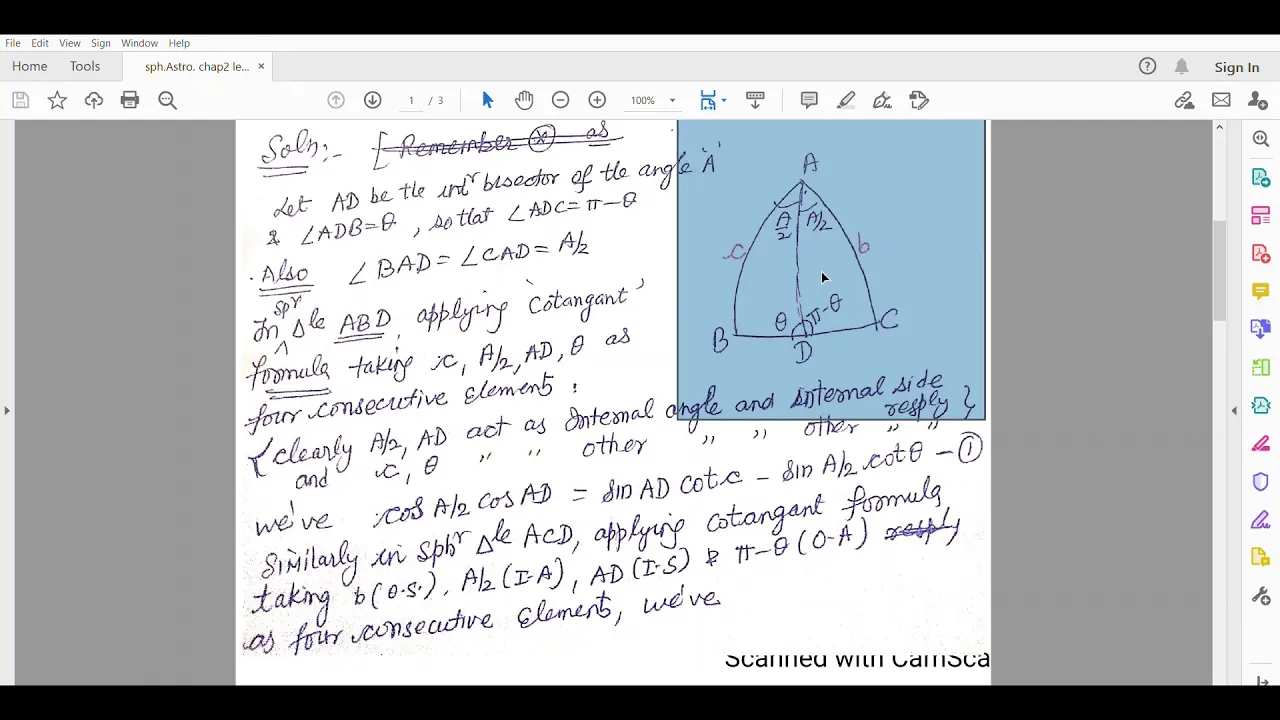 File Edit View Sign Window Help
Home Tools sph.Astro. chap2 le... × Sign In
1 / 3 100%
Soln:- [Remember (x) as
Let AD be the intr bisector of the angle 'A'
& ∠ADB=θ, so that ∠ADC=π-θ
. Also ∠BAD=∠CAD=A/2
In sphr Δle ABD, applying 'cotangant'
formula taking c, A/2, AD, θ as
four consecutive element :
{clearly A/2, AD act as Internal angle and internal side resply}
and c, θ " " other " " other " "
we've cos A/2 cos AD = sin AD cot c - sin A/2 cot θ - ①
Similarly in sphr Δle ACD, applying cotangant formula
taking b(O.S.), A/2 (I-A), AD (I-S) & π-θ (O-A) resply
as four consecutive element, we've
A
A/2 A/2
c b
θ π-θ
B D C
Scanned with CamSca